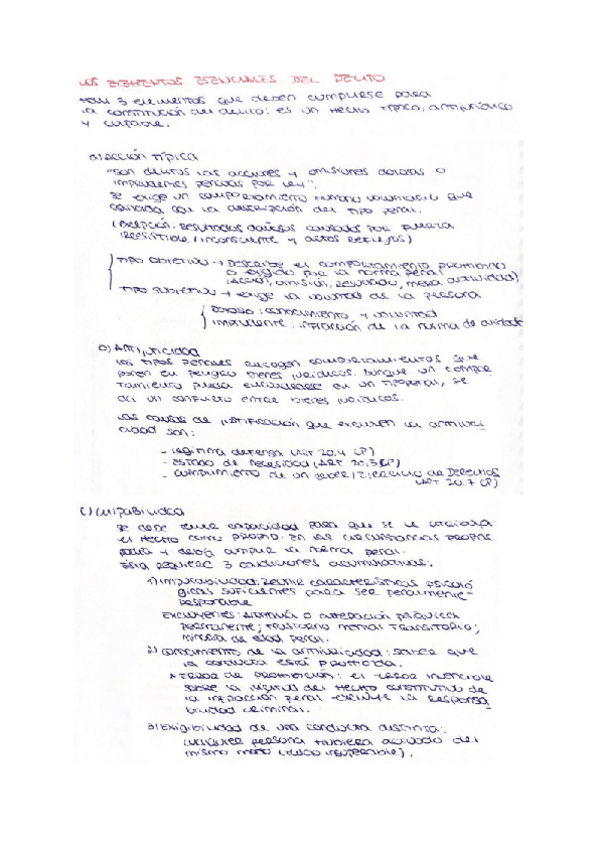 LOS ELEMENTOS ESENCIALES DEL DELITO
Hay 3 elementos que deben cumplirse para
la constitución del delito: es un hecho típico, antijurídico
y culpable.
a) Acción típica
"Son delitos las acciones y omisiones dolosas o
imprudentes penadas por ley".
Se exige un comportamiento humano voluntario que
coincida con la descripción del tipo penal.
(Excepción: resultados dañosos causados por fuerza
irresistible / inconsciente y actos reflejos)
Tipo objetivo → Describe el comportamiento prohibido
o exigido por la norma penal
(Acción, omisión, resultado, mera actividad)
Tipo subjetivo → exige la voluntad de la persona
Doloso: conocimiento y voluntad
Imprudente: infracción de la norma de cuidado
b) Antijuricidad
Los tipos penales recogen comportamientos que
ponen en peligro bienes jurídicos. Aunque un compor
tamiento pueda encuadrarse en un tipo penal, se
da un conflicto entre bienes jurídicos.
Las causas de justificación que excluyen la antijuri-
cidad son:
- legítima defensa (Art 20.4 CP)
- estado de necesidad (ART 20.5 CP)
- cumplimiento de un deber / Ejercicio de Derechos
(Art 20.7 CP)
c) Culpabilidad
Se debe tener capacidad para que se le atribuya
el hecho como propio. En las circunstancias
podía y debía cumplir la norma penal.
Esta requiere 3 condiciones acumulativas:
1) Imputabilidad: Reunir características psicoló
gicas suficientes para ser penalmente-
responsable
Excluyentes: Anomalía o alteración psíquica
permanente; trastorno mental transitorio;
minoría de edad penal.
2) Conocimiento de la antijuricidad: saber que
la conducta está prohibida.
* Error de prohibición: el error invencible
sobre la ilicitud del hecho constitutivo de
la infracción penal excluye la responsa-
bilidad criminal.
3) Exigibilidad de una conducta distinta:
cualquier persona hubiera actuado del
mismo modo (miedo insuperable).